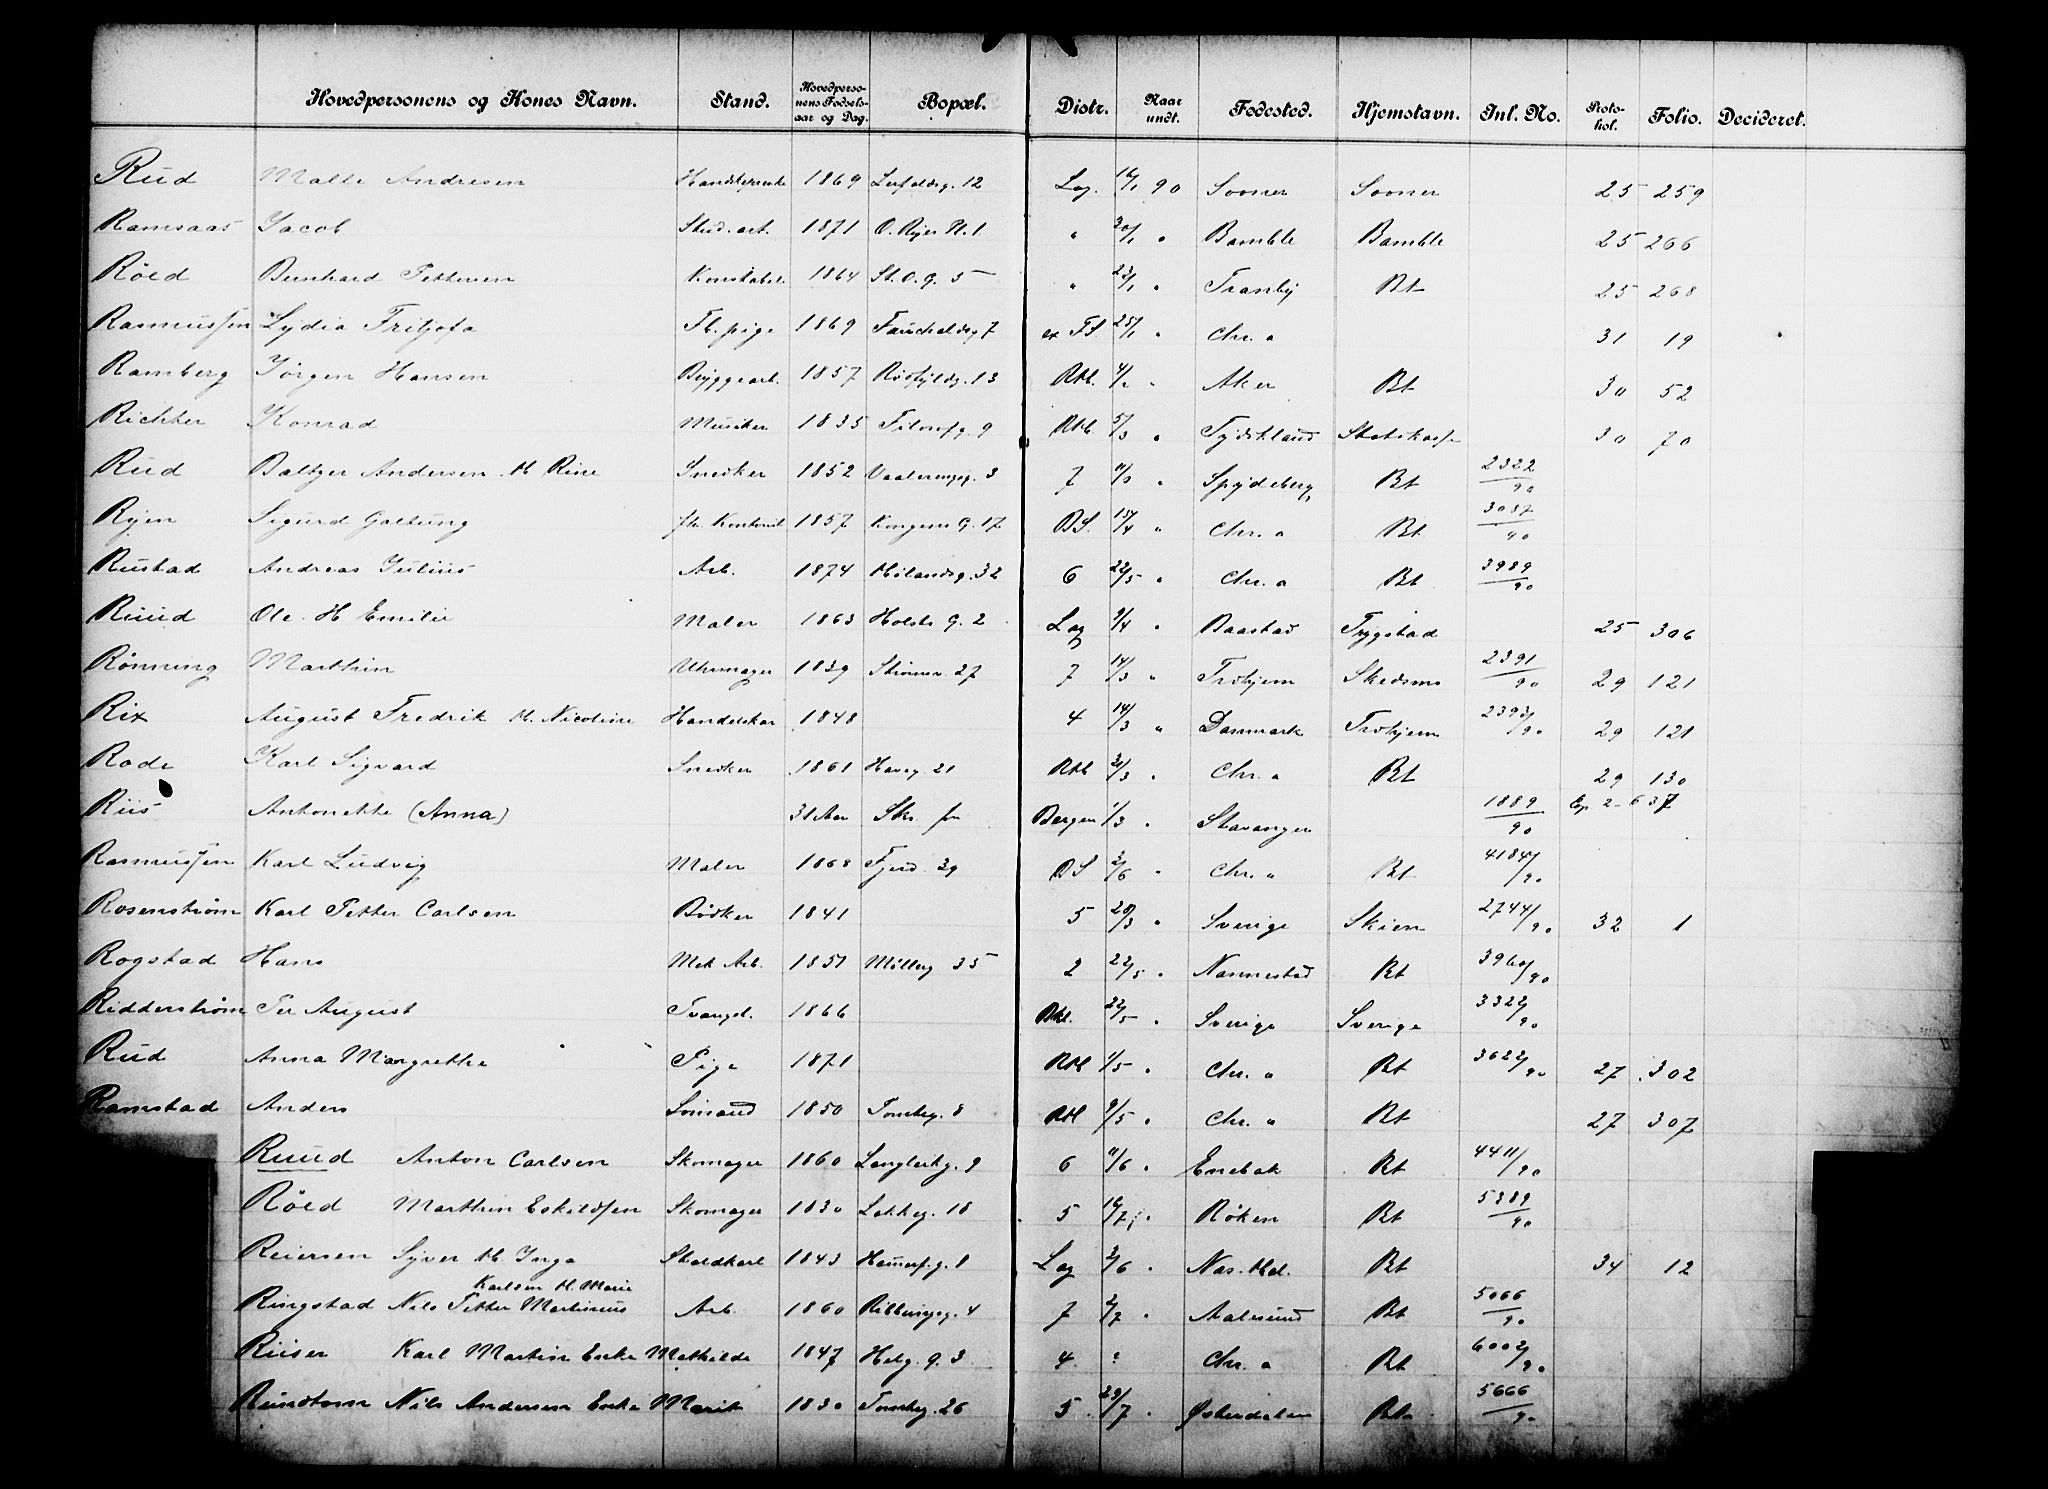 Hovedpersonens og Kones Navn. Stand. Hovedpersonens Fødselsaar og Dag. Bopæl. Distr. Naar undt. Fødested. Hjemstavn. Inl. No. Protokol. Folio. Decideret.
Rud Malte Andresen 1869 12 Lag. 16/1 90 25 259
Ramsaas Jacob Stud. art. 1871 O. Ryes Pl. 1 " 20/1 " Bamble Bamble 25 266
Röed Bernhard Pettersen Konstabel 1864 St. O. g. 5 " 23/1 " Tranby Bt 25 268
Rasmussen Lydia Fritjofa Fb. pige 1869 7 ex Fl. 25/1 " Chr. a 31 19
Ramberg Jørgen Hansen Bryggearb. 1857 13 Rtl. 4/2 " Aker Bt 30 52
Richter Konrad Musiker 1835 Filosofg. 9 Rtl. 5/3 " Tydskland Statskasse 30 70
Rud Baltzer Andersen H. Rine Snedker 1852 Vaalerengg. 3 7 11/3 " Spydeberg Bt 2322/90
Ryen Sigurd Galtung fh. Kontorist 1857 Kongens G. 17 DS. 15/4 " Chr. a Bt 3087/90
Rustad Andreas Julius Arb. 1874 Hølandsg. 32 6 22/5 " Chr. a Bt 3989/90
Ruud Ole H Emilie Maler 1863 Holsts G. 2 Lag 9/4 " Baastad Trygstad 25 306
Rønning Marthin Uhrmager 1839 27 7 14/3 " Trohjem Skedsmo 2391/90 29 121
Rix August Fredrik H. Nicoline Handelskar 1848 4 14/3 " Danmark Trohjem 2393/90 29 121
Rode Karl Sigvard Snedker 1861 Haveg. 21 Rtl 21/3 " Chr. a Bt 29 130
Riis Antonette (Anna) 31 Aar Bergen 1/3 " Stavanger 1889/90 Cop. 2 - 637
Rasmussen Karl Ludvig Maler 1868 Fjerd. 39 DS 2/6 " Chr. a Bt 4184/90
Rosenstrøm Karl Petter Carlsen Bödker 1841 5 28/3 " Sverige Skien 2744/90 32 1
Rogstad Hans Mek Arb. 1851 Mølleg 35 2 22/5 " Nannestad Bt 3960/90
Ridderstrøm Per August 1866 Rtl. 22/5 " Sverige Sverige 3322/90
Rud Anna Margrethe Pige 1871 Rtl 1/5 " Chr. a Bt 3622/90 27 302
Ramstad Anders Sömand 1850 Tomteg. 8 Rtl 9/5 " Chr. a Bt 27 307
Ruud Anton Carlsen Skomager 1860 Langleikg. 9 6 11/6 " Enebak Bt 4411/90
Röed Marthin Eskildsen Skomager 1830 Lakkeg. 18 5 16/7 " Røken Bt 5389/90
Reiersen Syver H. Inga Staldkarl 1843 Hamerf. g. 8 Lag 3/6 " Nas. Hed. Bt 34 12
Karlsen H. Marie
Ringstad Nils Petter Martinius Arb. 1860 Ribbungsg. 4 7 2/7 " Aalesund Bt 5066/90
Riiser Karl Martin Enke Mathilde 1847 Helg. g. 3 4 " Chr. a Bt 6002/90
Rundtom Nils Andersen Enke Marit 1830 Tomteg. 26 5 29/7 " Østerdalen Bt 5666/90